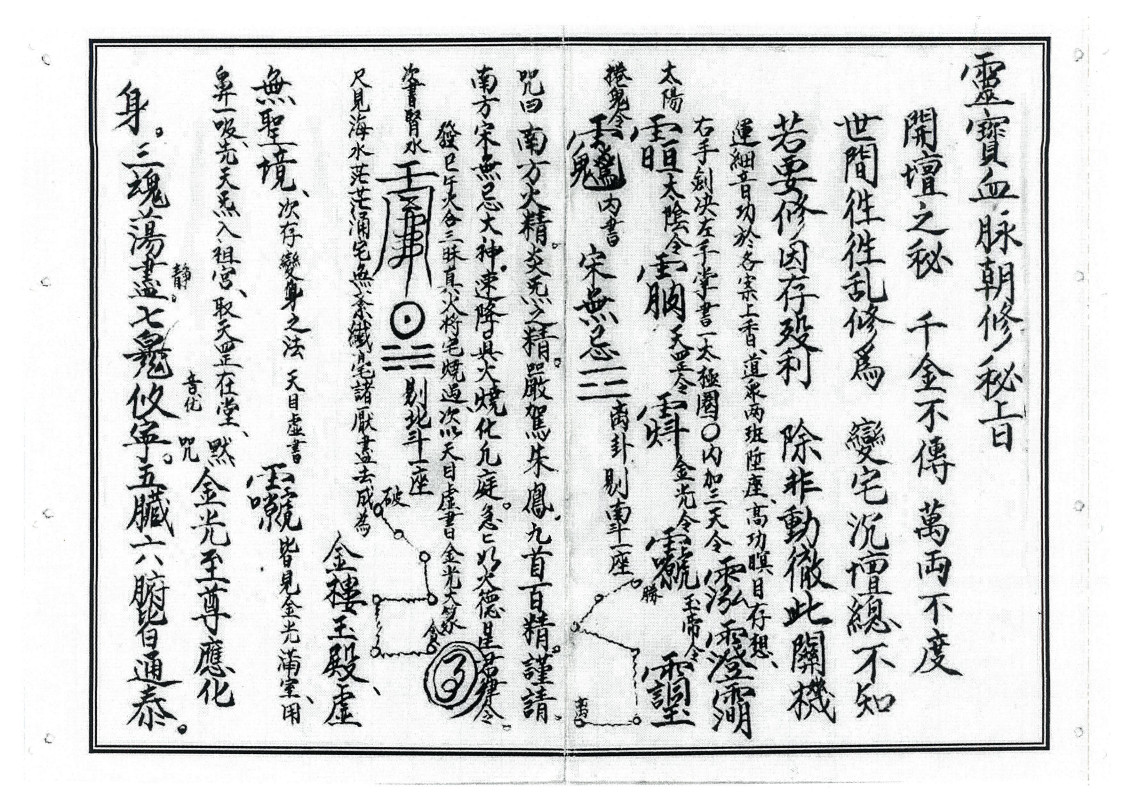 靈寶血脉朝修秘上曰
開壇之秘 千金不傳 萬両不度
世間徃徃乱修為 變宅沉壇總不知
若要修因存殁利 除非動徹此關機
運細音功於各案上香道衆两班陞座、高功瞑目存想、
右手劍决左手掌書一太極圈〇內加三天令
太陽 太陰令 天罡令 金光令 玉帝令
捲鬼令 内書 宋無忌☲離卦剔南斗一座
勝
离
咒曰 南方火精。炎炎之精。嚴駕朱鳳。九首百精。謹請。
南方宋無忌大神。速降真火燒化凢庭。急ヒ如火德星君律令。
發巳午火合三昧真火将宅燒過次以天目虚書金光大篆
次書腎水 ☵ 剔北斗一座
破
尺見海水茫茫涌宅無紊纖毫諸厭盡去成為
金樓玉殿、虚
無聖境、次存變身之法 天目虚書 皆見金光滿室、用
鼻一吸先天炁入祖宮、取天罡在堂、
默咒 金光至尊應化
身。三魂蕩盡七鬼攸寧。五臟六腑皆通泰。
静。